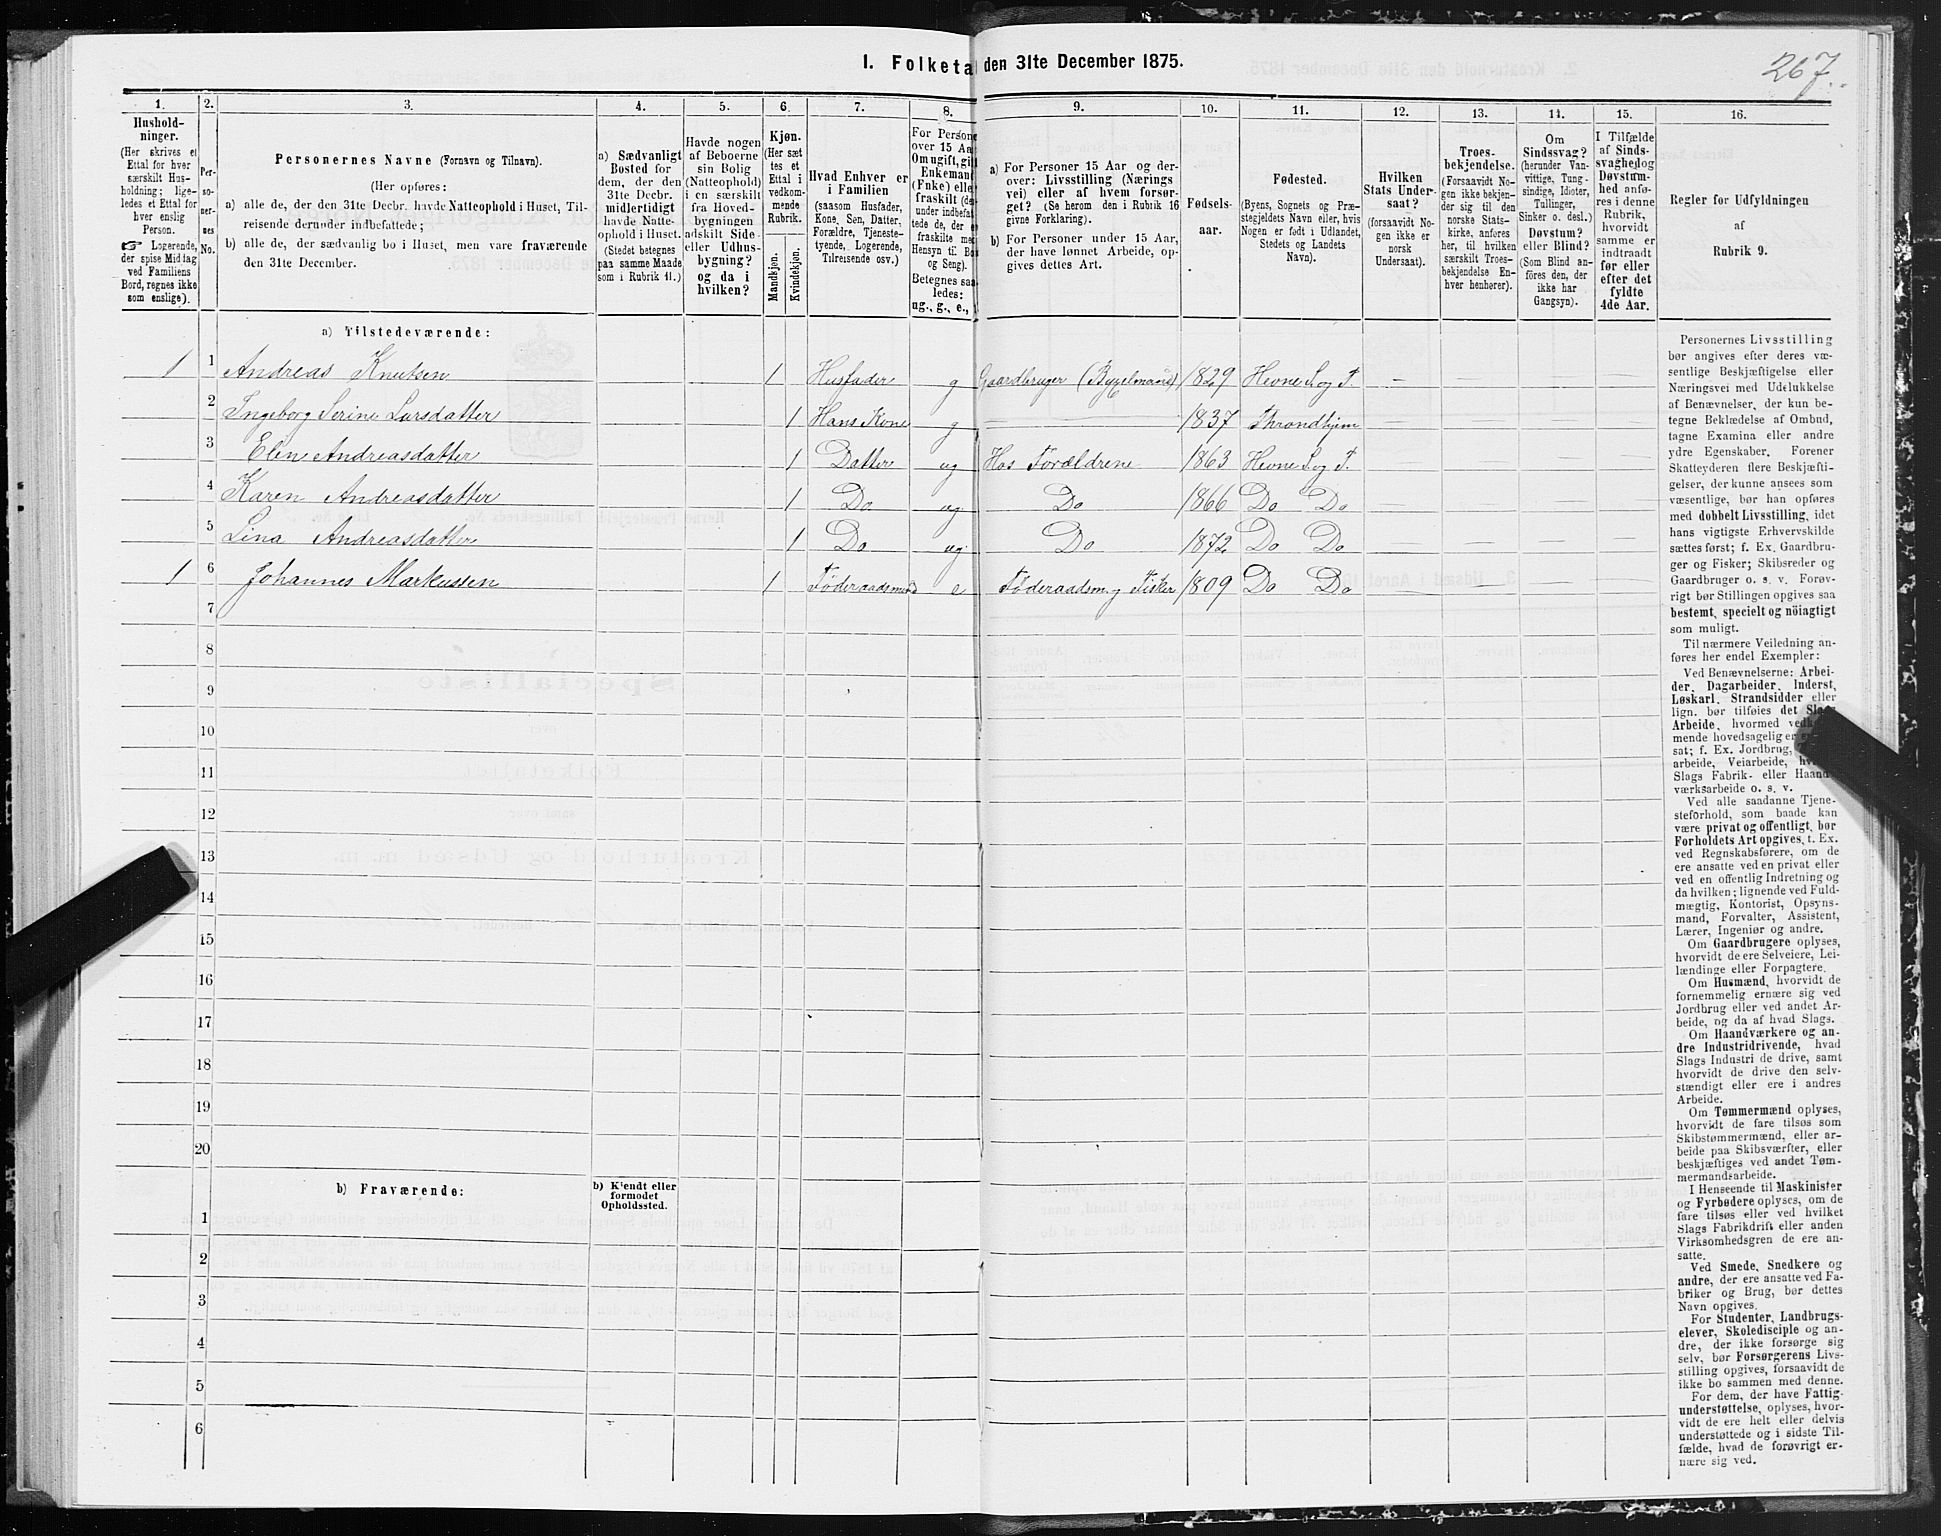 1. Folketa den 31te December 1875.
267.
1.
2.
3.
4.
5.
6.
7.
8.
9.
10.
11.
12.
13.
14.
15.
16.
Hushold-
ninger.
(Her skrives et
Ettal for hver
særskilt Hus-
holdning; lige-
ledes et Ettal for
hver enslig
Person.
☞ Logerende,
der spise Middag
ved Familiens
Bord, regnes ikke
som enslige).
Per-
so-
ner-
nes
No.
Personernes Navne (Fornavn og Tilnavn).
(Her opføres:
a) alle de, der den 31te Decbr. havde Natteophold i Huset, Til-
reisende derunder indbefattede;
b) alle de, der sædvanlig bo i Huset, men vare fraværende
den 31te December.
a) Sædvanligt
Bosted for
dem, der den
31te Decbr.
midlertidigt
havde Natte-
ophold i Huset.
(Stedet betegnes
paa samme Maade
som i Rubrik 11.)
Havde nogen
af Beboerne
sin Bolig
(Natteophold)
i en særskilt
fra Hoved-
bygningen
adskilt Side-
eller Udhus-
bygning?
og da i
hvilken?
Kjøn.
(Her sæt-
tes et
Ettal i
vedkom-
mende
Rubrik.
Mandkjøn.
Kvindekjøn.
Hvad Enhver er
i Familien
(saasom Husfader,
Kone, Søn, Datter,
Forældre, Tjeneste-
tyende, Logerende,
Tilreisende osv.)
For Persone
over 15 Aa
Om ugift, gi
Enkeman
(Fnke) elle
fraskilt (de
under indbefat
tede de, der e
fraskilte me
Hensyn til Bo
og Seng).
Betegnes saa
ledes:
ug., g., e.,
a) For Personer 15 Aar og der-
over: Livsstilling (Nærings
vei) eller af hvem forsør-
get? (Se herom den i Rubrik 16
givne Forklaring).
b) For Personer under 15 Aar,
der have lønnet Arbeide, op-
gives dettes Art.
Fødsels-
aar.
Fødested.
(Byens, Sognets og Præ-
stegjeldets Navn eller, hvis
Nogen er født i Udlandet,
Stedets og Landets
Navn).
Hvilken
Stats Under-
saat?
(forsaavidt No-
gen ikke er
norsk
Undersaat).
Troes-
bekjendelse.
(Forsaavidt No-
gen ikke bekjen-
der sig til den
norske Stats-
kirke, anføres
her, til hvilken
særskilt Troes-
bekjendelse En-
hver henhører).
Om
Sindssvag?
(herunder Van-
vittige, Tung-
sindige, Idioter,
Tullinger,
Sinker o. desl.)
Døvstum?
eller Blind?
(Som Blind an-
føres den, der
ikke har
Gangsyn).
I Tilfælde
af Sinds-
svaghed og
Døvstum-
hed anfø-
res i denne
Rubrik,
hvorvidt
samme er
indtraadt
før eller
efter det
fyldte
4de Aar.
Regler for Udfyldningen
af
Rubrik 9.
a) Tilstedeværende:
1 1 Andreas Knutsen 1 Husfader g Gaardbruger (Bygselmand) 1829 Hevne S. og P. —
2 Ingeborg Serine Larsdatter 1 Hans Kone g — 1837 Throndhjem — — — —
3 Elen Andreasdatter 1 Datter ug Hos Forældrene 1863 Hevne S. og P. — — — —
4 Karen Andreasdatter 1 Do ug Do 1866 Do Do — — — —
5 Lina Andreasdatter 1 Do ug Do 1872 Do Do — — — —
1 6 Johannes Markussen 1 Føderaadsmand e Føderaadsm. og Fisker 1809 Do Do — — — —
7
8
9
10
11
12
13
14
15
16
17
18
19
20
b) Fraværende:
b) Kjendt eller
formodet
Opholdssted.
1
2
3
4
5
6
Personernes Livsstilling
bør angives efter deres væ-
sentlige Beskjæftigelse eller
Næringsvei med Udelukkelse
af Benævnelser, der kun be-
tegne Beklædelse af Ombud,
tagne Examina eller andre
ydre Egenskaber. Forener
Skatteyderen flere Beskjæfti-
gelser, der kunne ansees som
væsentlige, bør han opføres
med dobbelt Livsstilling, idet
hans vigtigste Erhvervskilde
sættes først; f. Ex. Gaardbru-
ger og Fisker; Skibsreder og
Gaardbruger o. s. v. Forøv-
rigt bør Stillingen opgives saa
bestemt, specielt og nöiagtigt
som muligt.
Til nærmere Veiledning an-
føres her endel Exempler:
Ved Benævnelserne: Arbei-
der, Dagarbeider, Inderst,
Løskarl, Strandsidder eller
lign. bør tilføies det Slags
Arbeide, hvormed vedk
mende hovedsagelig er
sat; f. Ex. Jordbrug,
arbeide, Veiarbeide,
Slags Fabrik- eller Haand
værksarbeide o. s. v.
Ved alle saadanne Tjene-
steforhold, som baade kan
være privat og offentligt, bør
Forholdets Art opgives, t. Ex.
ved Regnskabsførere, om de
ere ansatte ved en privat eller
ved en offentlig Indretning og
da hvilken; lignende ved Fuld-
mægtig, Kontorist, Opsyns-
mand, Forvalter, Assistent,
Lærer, Ingeniør og andre.
Om Gaardbrugere oplyses,
hvorvidt de ere Selveiere, Lei-
lændinge eller Forpagtere.
Om Husmænd, hvorvidt de
fornemmelig ernære sig ved
Jordbrug eller ved andet Ar-
beide, og da af hvad Slags.
Om Haandværkere og an-
dre Industridrivende, hvad
Slags Industri de drive, samt
hvorvidt de drive den selv-
stændigt eller ere i andres
Arbeide.
Om Tømmermænd oplyses,
hvorvidt de fare tilsøs som
Skibstømmermænd, eller ar-
beide paa Skibsværfter, eller
beskjæftiges ved andet Tøm-
mermandsarbeide.
I Henseende til Maskinister
og Fyrbødere oplyses, om de
fare tilsøs eller ved hvilket
Slags Fabrikdrift eller anden
Virksomhedsgren de ere an-
satte.
Ved Smede, Snedkere og
andre, der ere ansatte ved Fa-
briker og Brug, bør dettes
Navn opgives.
For Studenter, Landbrugs-
elever, Skoledisciple og an-
dre, der ikke forsørge sig
selv, bør Forsørgerens Livs-
stilling opgives, forsaavidt de
ikke bo sammen med denne.
For dem, der have Fattig-
understøttelse, oplyses, hvor-
vidt de ere helt eller delvis
understøttede og i sidste Til-
fælde, hvad de forøvrigt er-
nære sig ved.